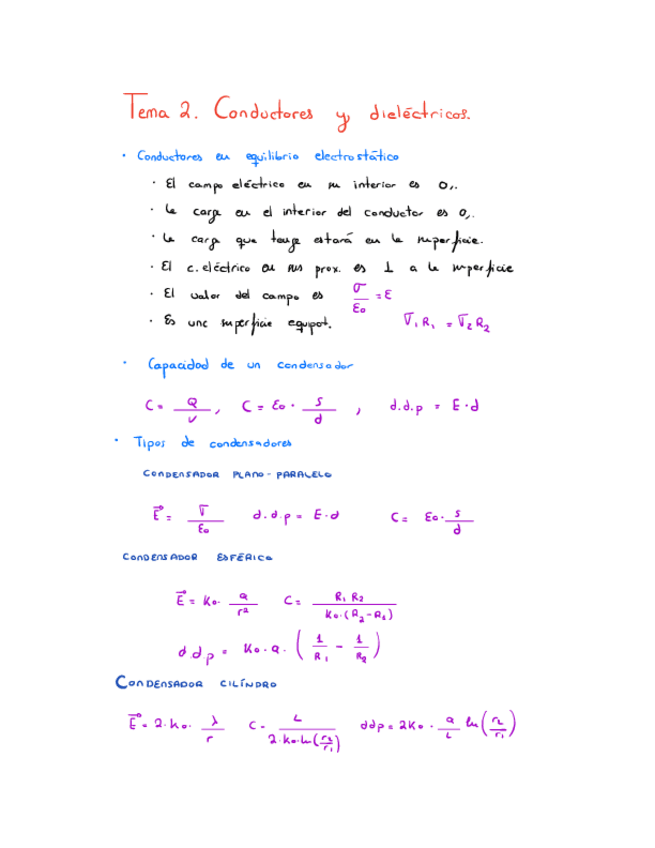 Tema 2. Conductores y dieléctricos.
· Conductores en equilibrio electrostático
· El campo eléctrico en su interior es 0,.
· La carga en el interior del conductor es 0,.
· La carga que tenga estará en la superficie.
· El c. eléctrico en sus prox. es ⊥ a la superficie
· El valor del campo es σ/ε₀ = E
· Es una superficie equipot. σ₁R₁ = σ₂R₂
· Capacidad de un condensador
C = Q/V , C = ε₀ · S/d , d.d.p = E·d
· Tipos de condensadores
CONDENSADOR PLANO-PARALELO
E⃗ = σ/ε₀ d.d.p = E·d C = ε₀·S/d
CONDENSADOR ESFÉRICO
E⃗ = K₀· Q/r² C = R₁R₂/K₀·(R₂-R₁)
d.d.p = K₀·Q·(1/R₁ - 1/R₂)
CONDENSADOR CILÍNDRO
E⃗ = 2·K₀· λ/r C = L/2·K₀·ln(r₂/r₁) ddp = 2K₀ · Q/L ln(r₂/r₁)